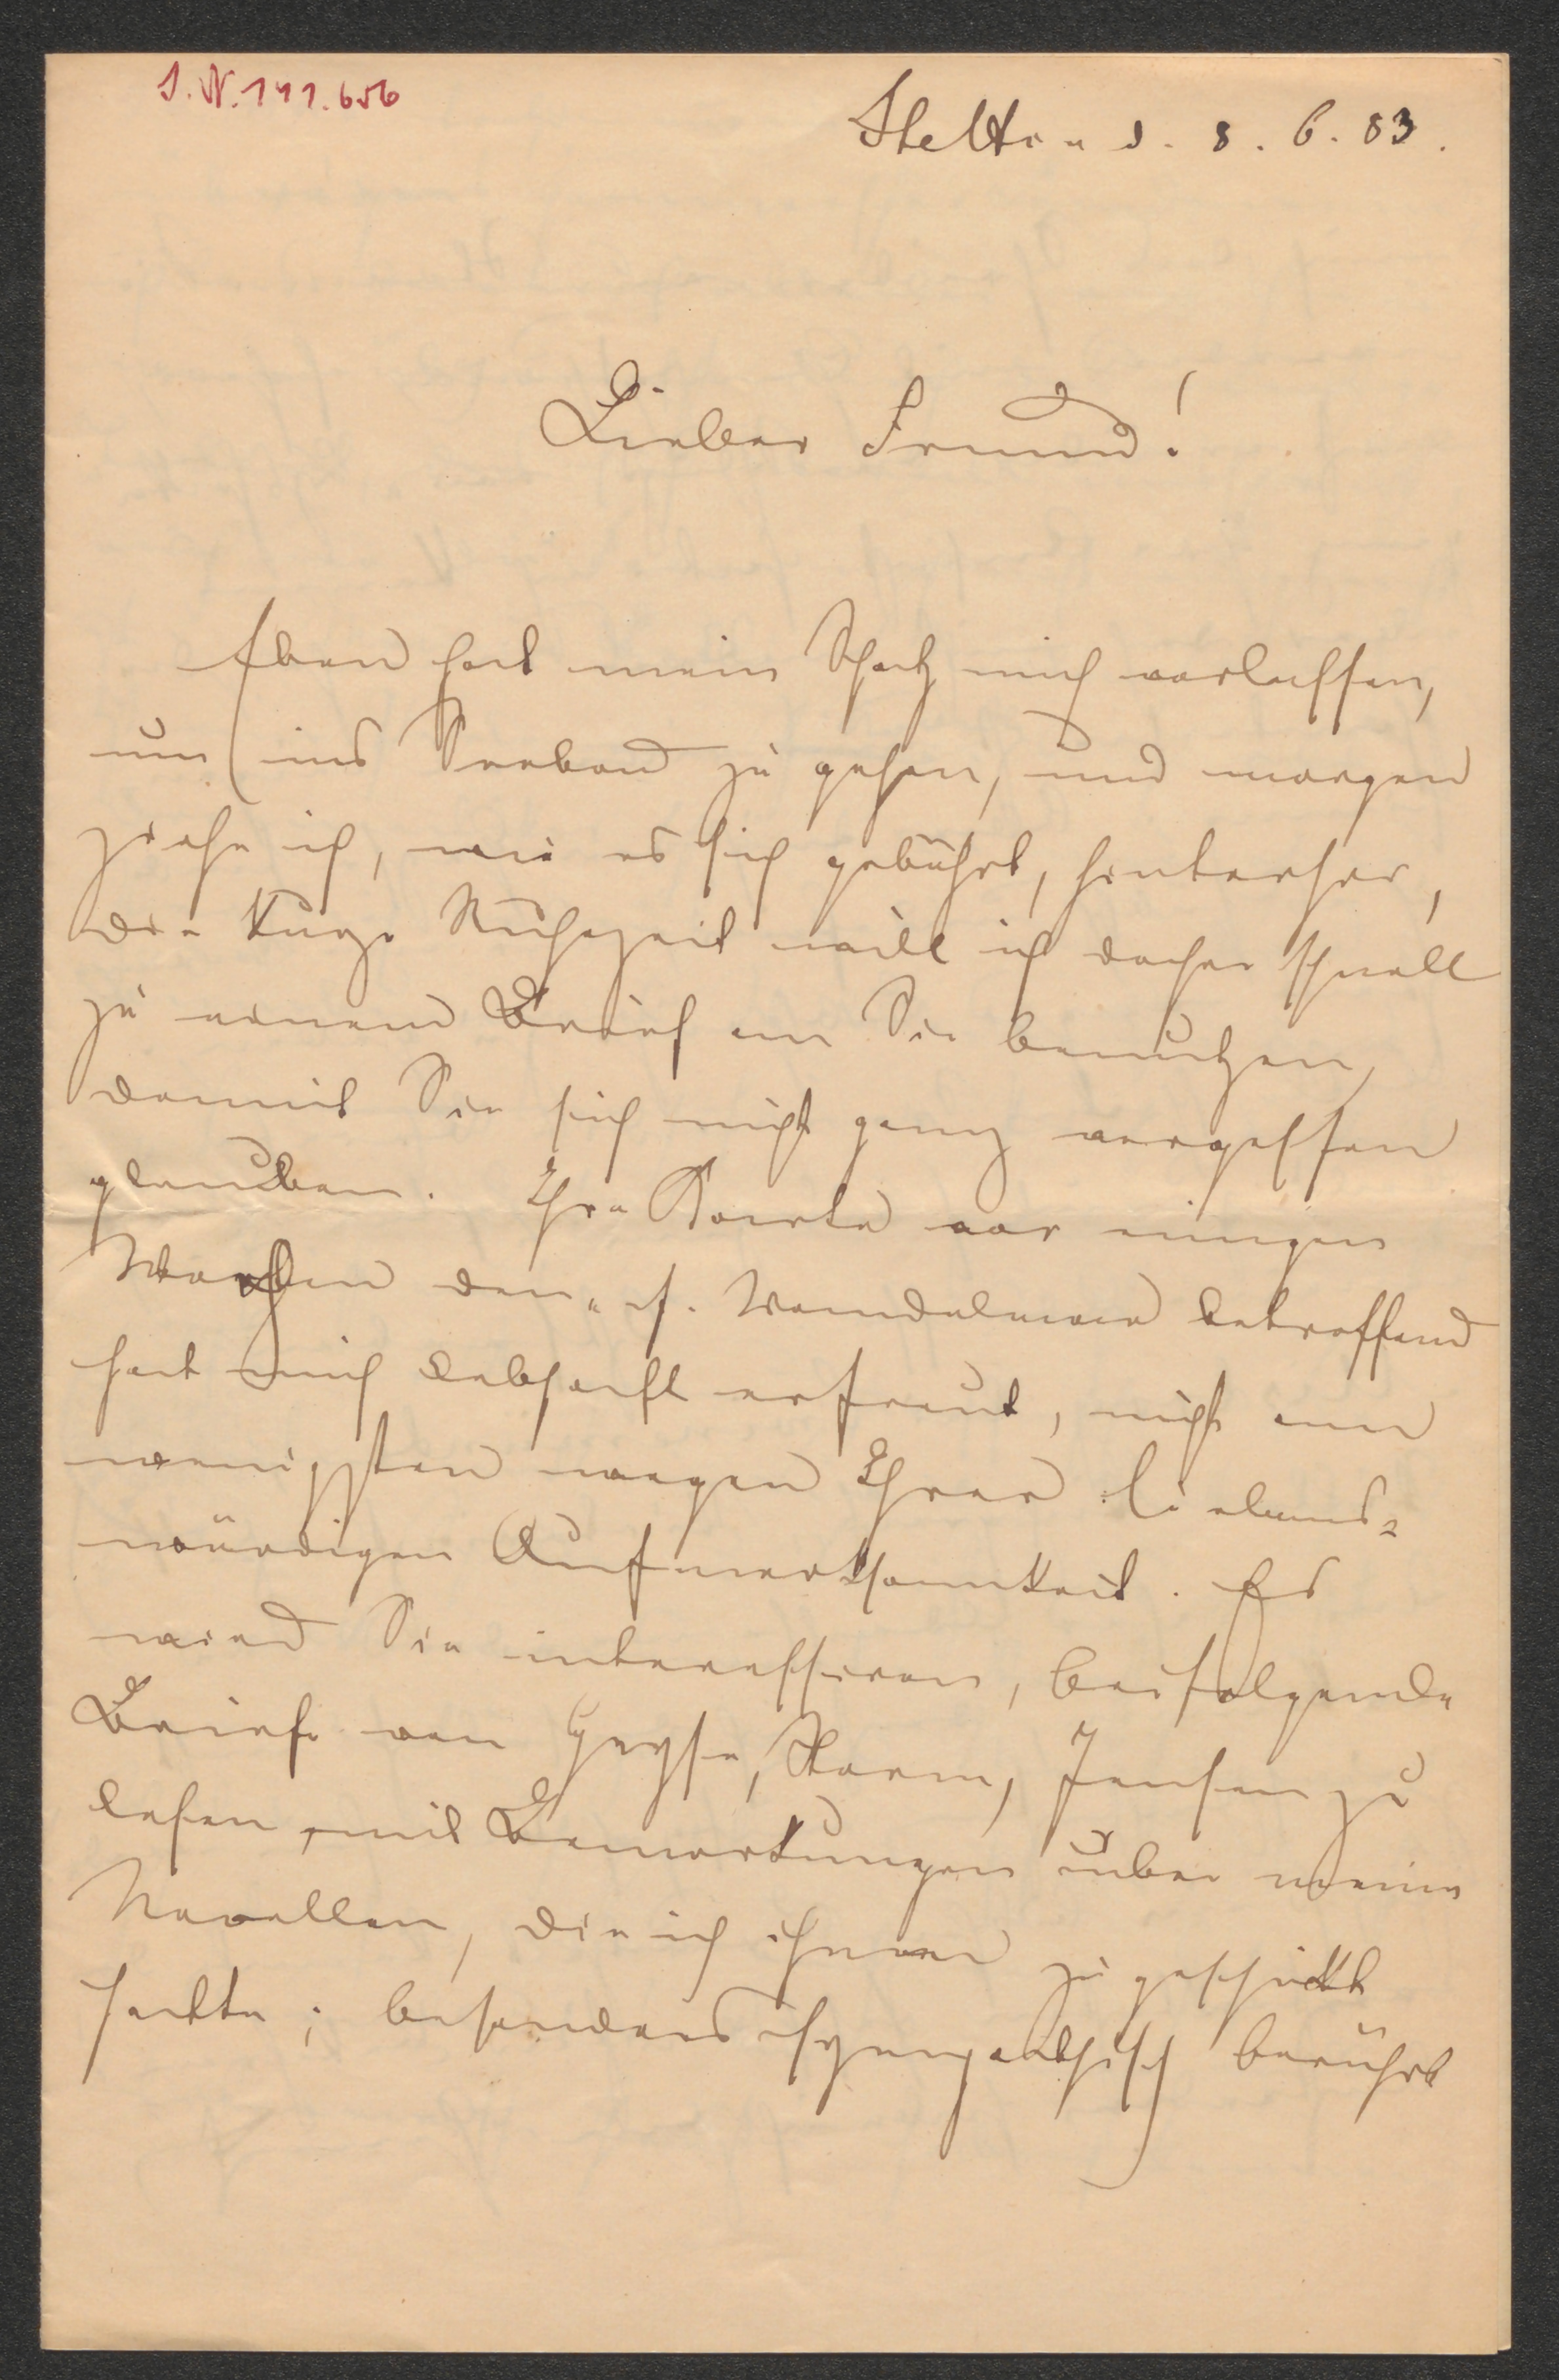 I.N. 141.656
Stettin d. 8. 6. 83.
Lieber Freund!
Eben hat mein Schatz mich verlassen,
um ins Seebad zu gehen, und morgen
ziehe ich, wie es sich gebührt, hinterher,
die kurze Ruhezeit will ich daher schnell
zu einem Brief an Sie benutzen,
damit Sie sich nicht ganz vergessen
glauben. Ihre Karte vor einigen
Wochen den
betreffend
hat mich lebhaft erfreut, nicht am
wenigsten wegen Ihrer liebens-
würdigen Aufmerksamkeit. Es
wird Sie interessiren, beifolgende
Briefe von Heyse, Storm, Jensen zu
lesen, mit Bemerkungen über meine
Novellen, die ich ihnen zu geschickt
hatte; besonders sympathisch berührt